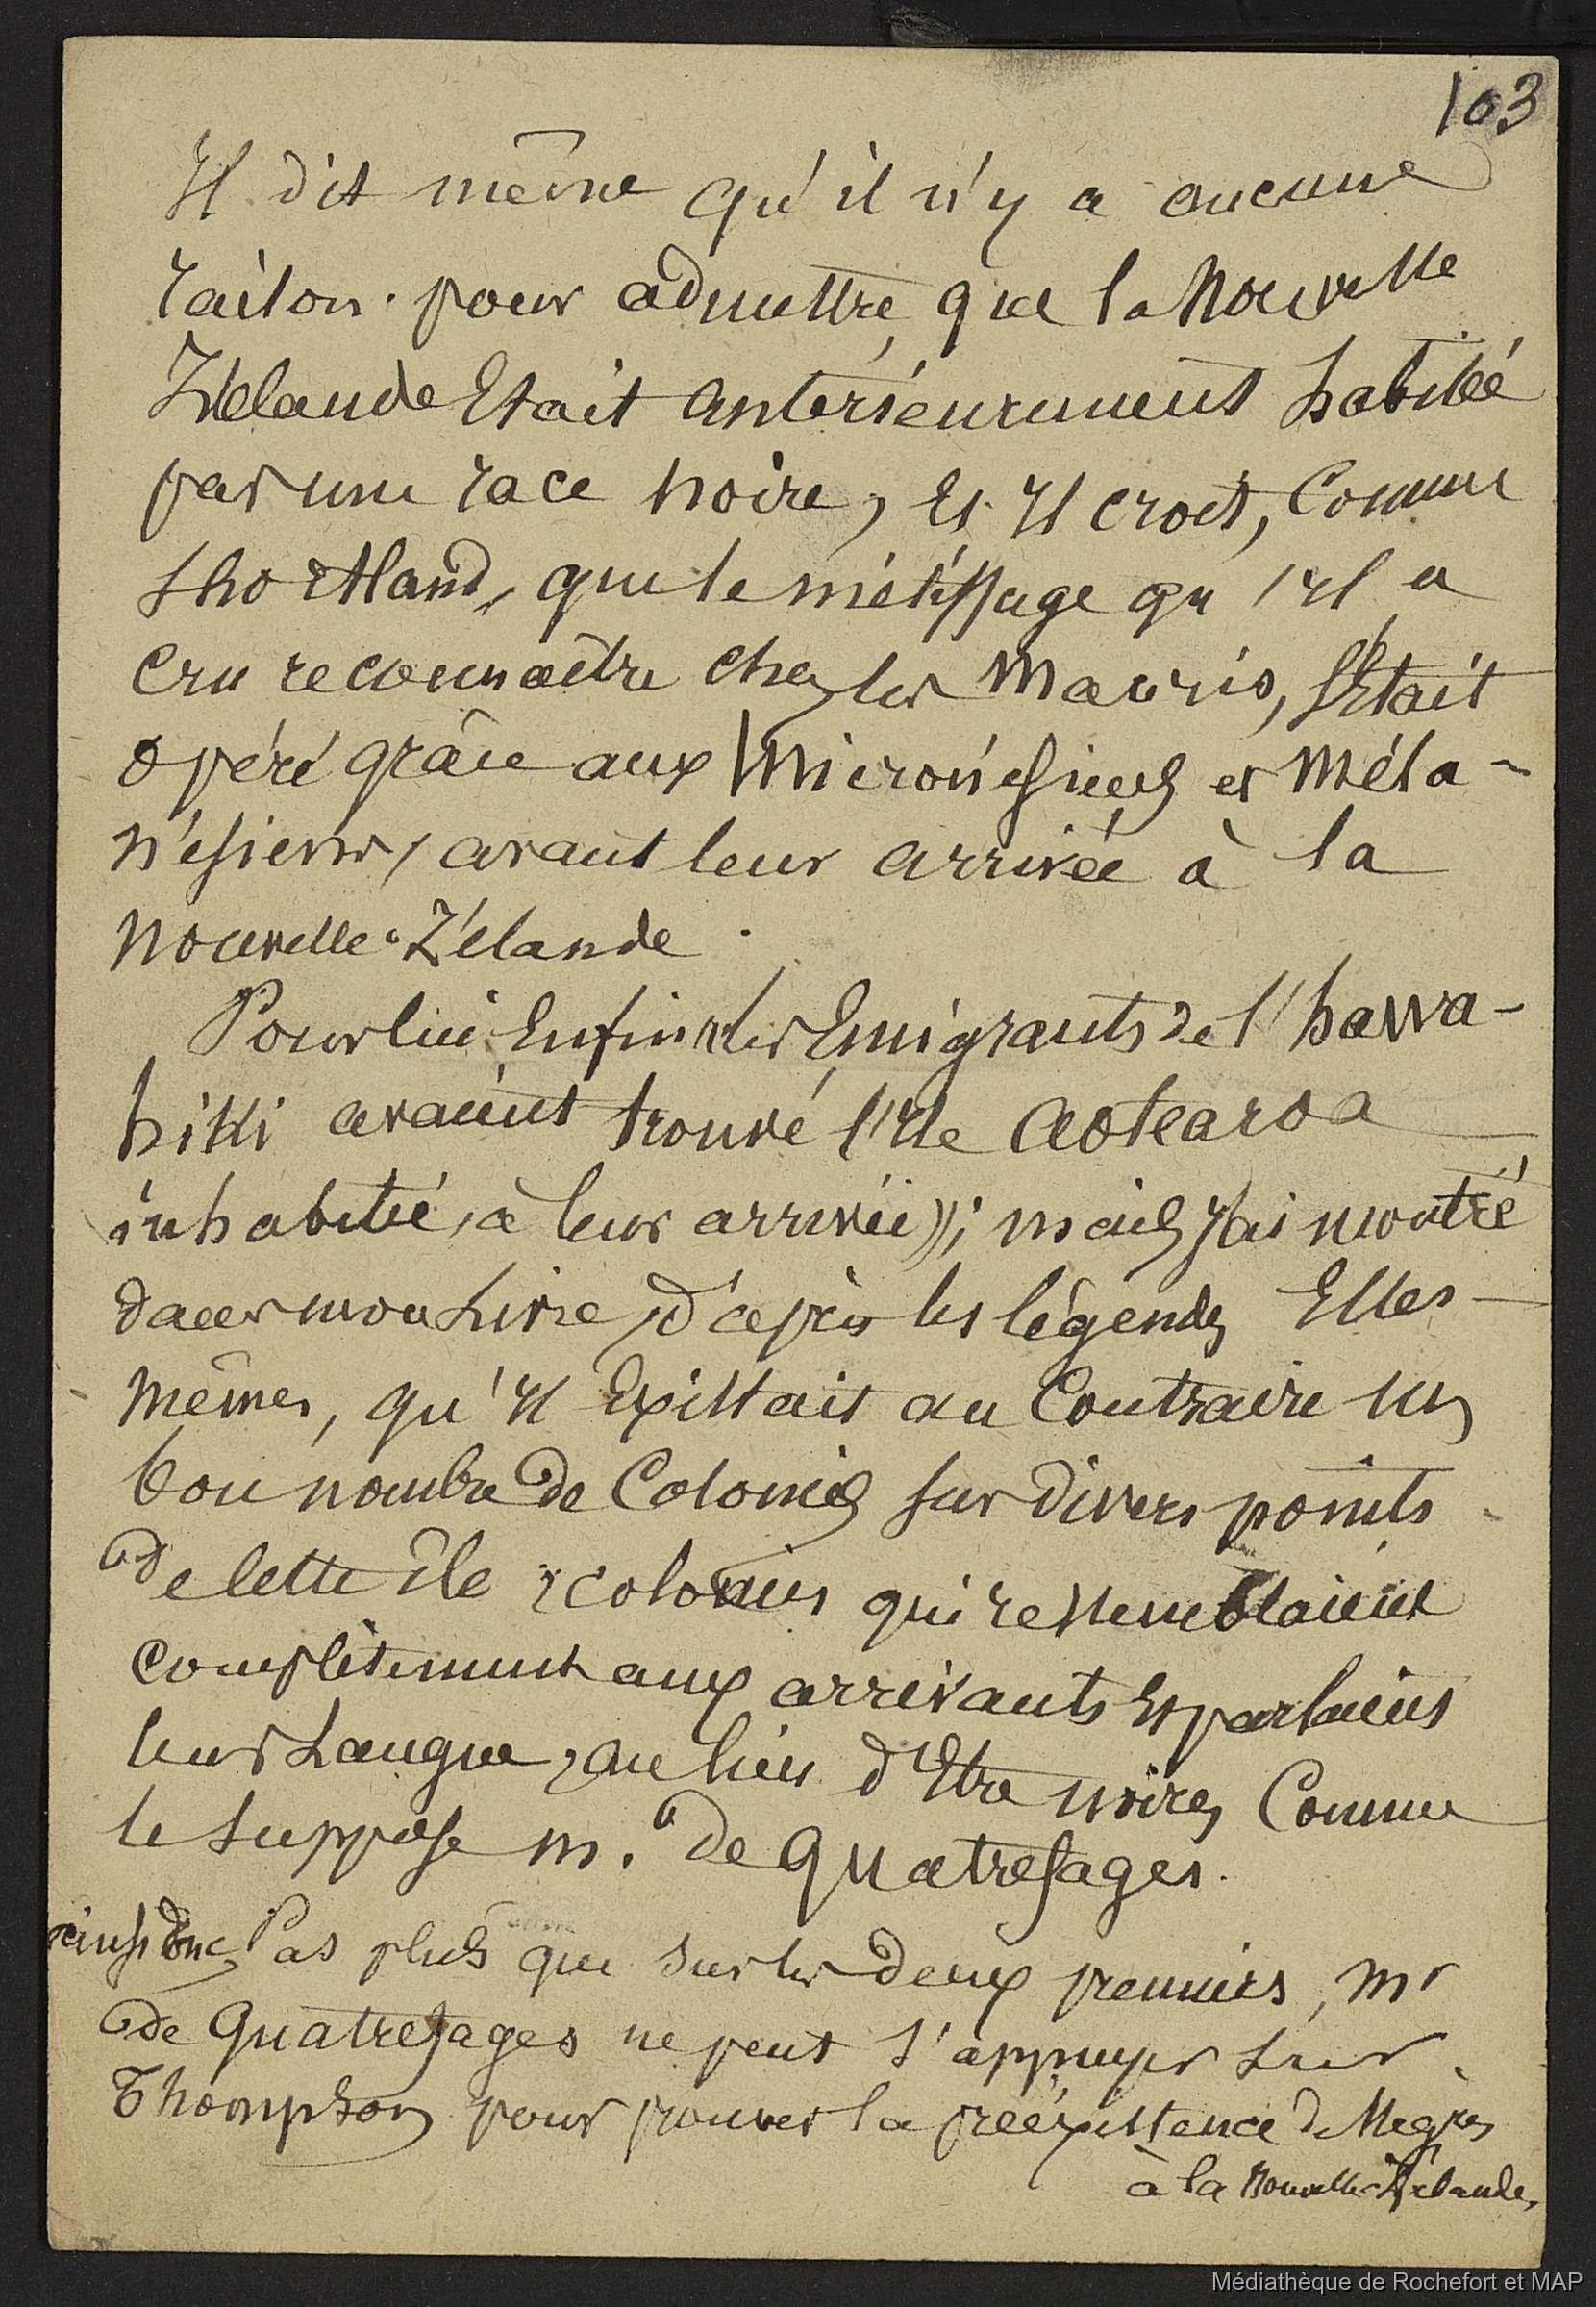 103
Il dit même qu'il n'y a aucune
raison pour admettre que la Nouvelle
Zélande Etait antérieurement habitée
par une race noire, Et Il croit, Comme
Shortland, que le métissage qu'Il a
Cru reconnaître chez les Maoris, S'Etait
opéré grâce aux Micronésiens et Méla-
nésiens, avant leur arrivée à la
Nouvelle-Zélande.
Pour lui Enfin les Emigrants de l'hawa-
hiki avaient trouvé l'Ile Aotearoa
inhabitée, à leur arrivée; mais j'ai montré
dans mon Livre, d'après les légendes Elles-
mêmes, qu'Il Existait au Contraire un
bon nombre de Colonies sur divers points
de cette île, colonies qui ressemblaient
complètement aux arrivants Et parlaient
leur Langue, au lieu d'Etre noires, Comme
le suppose M. de Quatrefages.
ainsi donc, Pas plus que sur les deux premiers, Mr
de Quatrefages ne peut s'appuyer sur
Thompson pour prouver la préexistence de Nègres
à la Nouvelle-Zélande.
Médiathèque de Rochefort et MAP